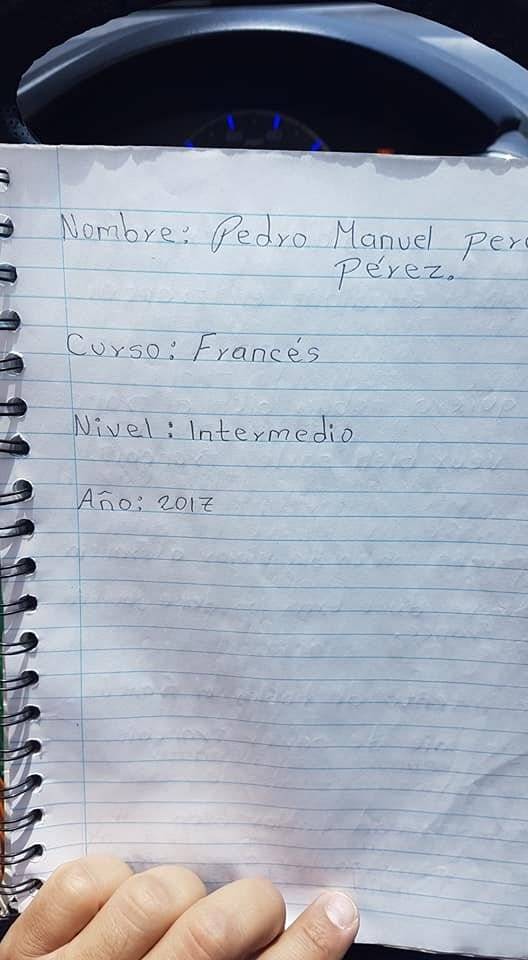 Nombre: Pedro Manuel
Pérez.
Curso: Francés
Nivel: Intermedio
Año: 2017